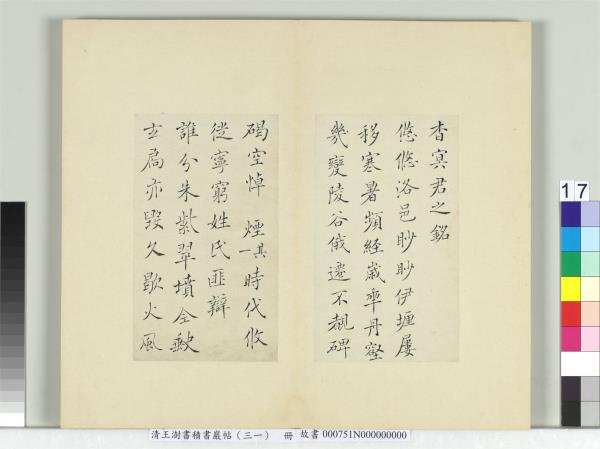 杳冥君之銘
悠悠洛邑眇眇伊壥屢
移寒暑頻經歲年丹壑
幾變陵谷俄遷不覩碑
碣空悼 煙其一時代攸
徙寧窮姓氏匪辯
誰分朱紫翠墳全缺
玄扃亦毀久歇火風
清王澍書積書巖帖(三一) 冊 故書 000751N000000000
17